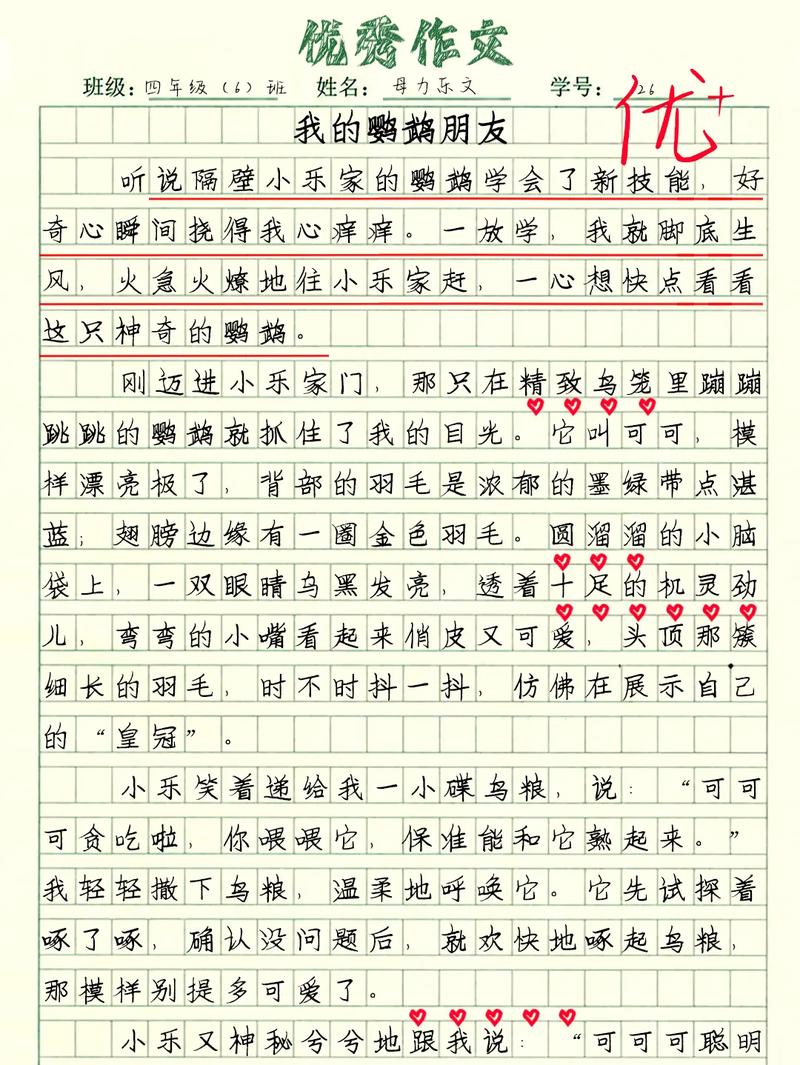 优秀作文
班级：四年级（6）班 姓名：母力乐文 学号：26
优+
我的鹦鹉朋友
听说隔壁小乐家的鹦鹉学会了新技能，好
奇心瞬间挠得我心痒痒。一放学，我就脚底生
风，火急火燎地往小乐家赶，一心想快点看看
这只神奇的鹦鹉。
刚迈进小乐家门，那只在精致鸟笼里蹦蹦
跳跳的鹦鹉就抓住了我的目光。它叫可可，模
样漂亮极了，背部的羽毛是浓郁的墨绿带点湛
蓝；翅膀边缘有一圈金色羽毛。圆溜溜的小脑
袋上，一双眼睛乌黑发亮，透着十足的机灵劲
儿，弯弯的小嘴看起来俏皮又可爱，头顶那簇
细长的羽毛，时不时抖一抖，仿佛在展示自己
的“皇冠”。
小乐笑着递给我一小碟鸟粮，说：“可可
可贪吃啦，你喂喂它，保准能和它熟起来。”
我轻轻撒下鸟粮，温柔地呼唤它。它先试探着
啄了啄，确认没问题后，就欢快地啄起鸟粮，
那模样别提多可爱了。
小乐又神秘兮兮地跟我说：“可可可聪明